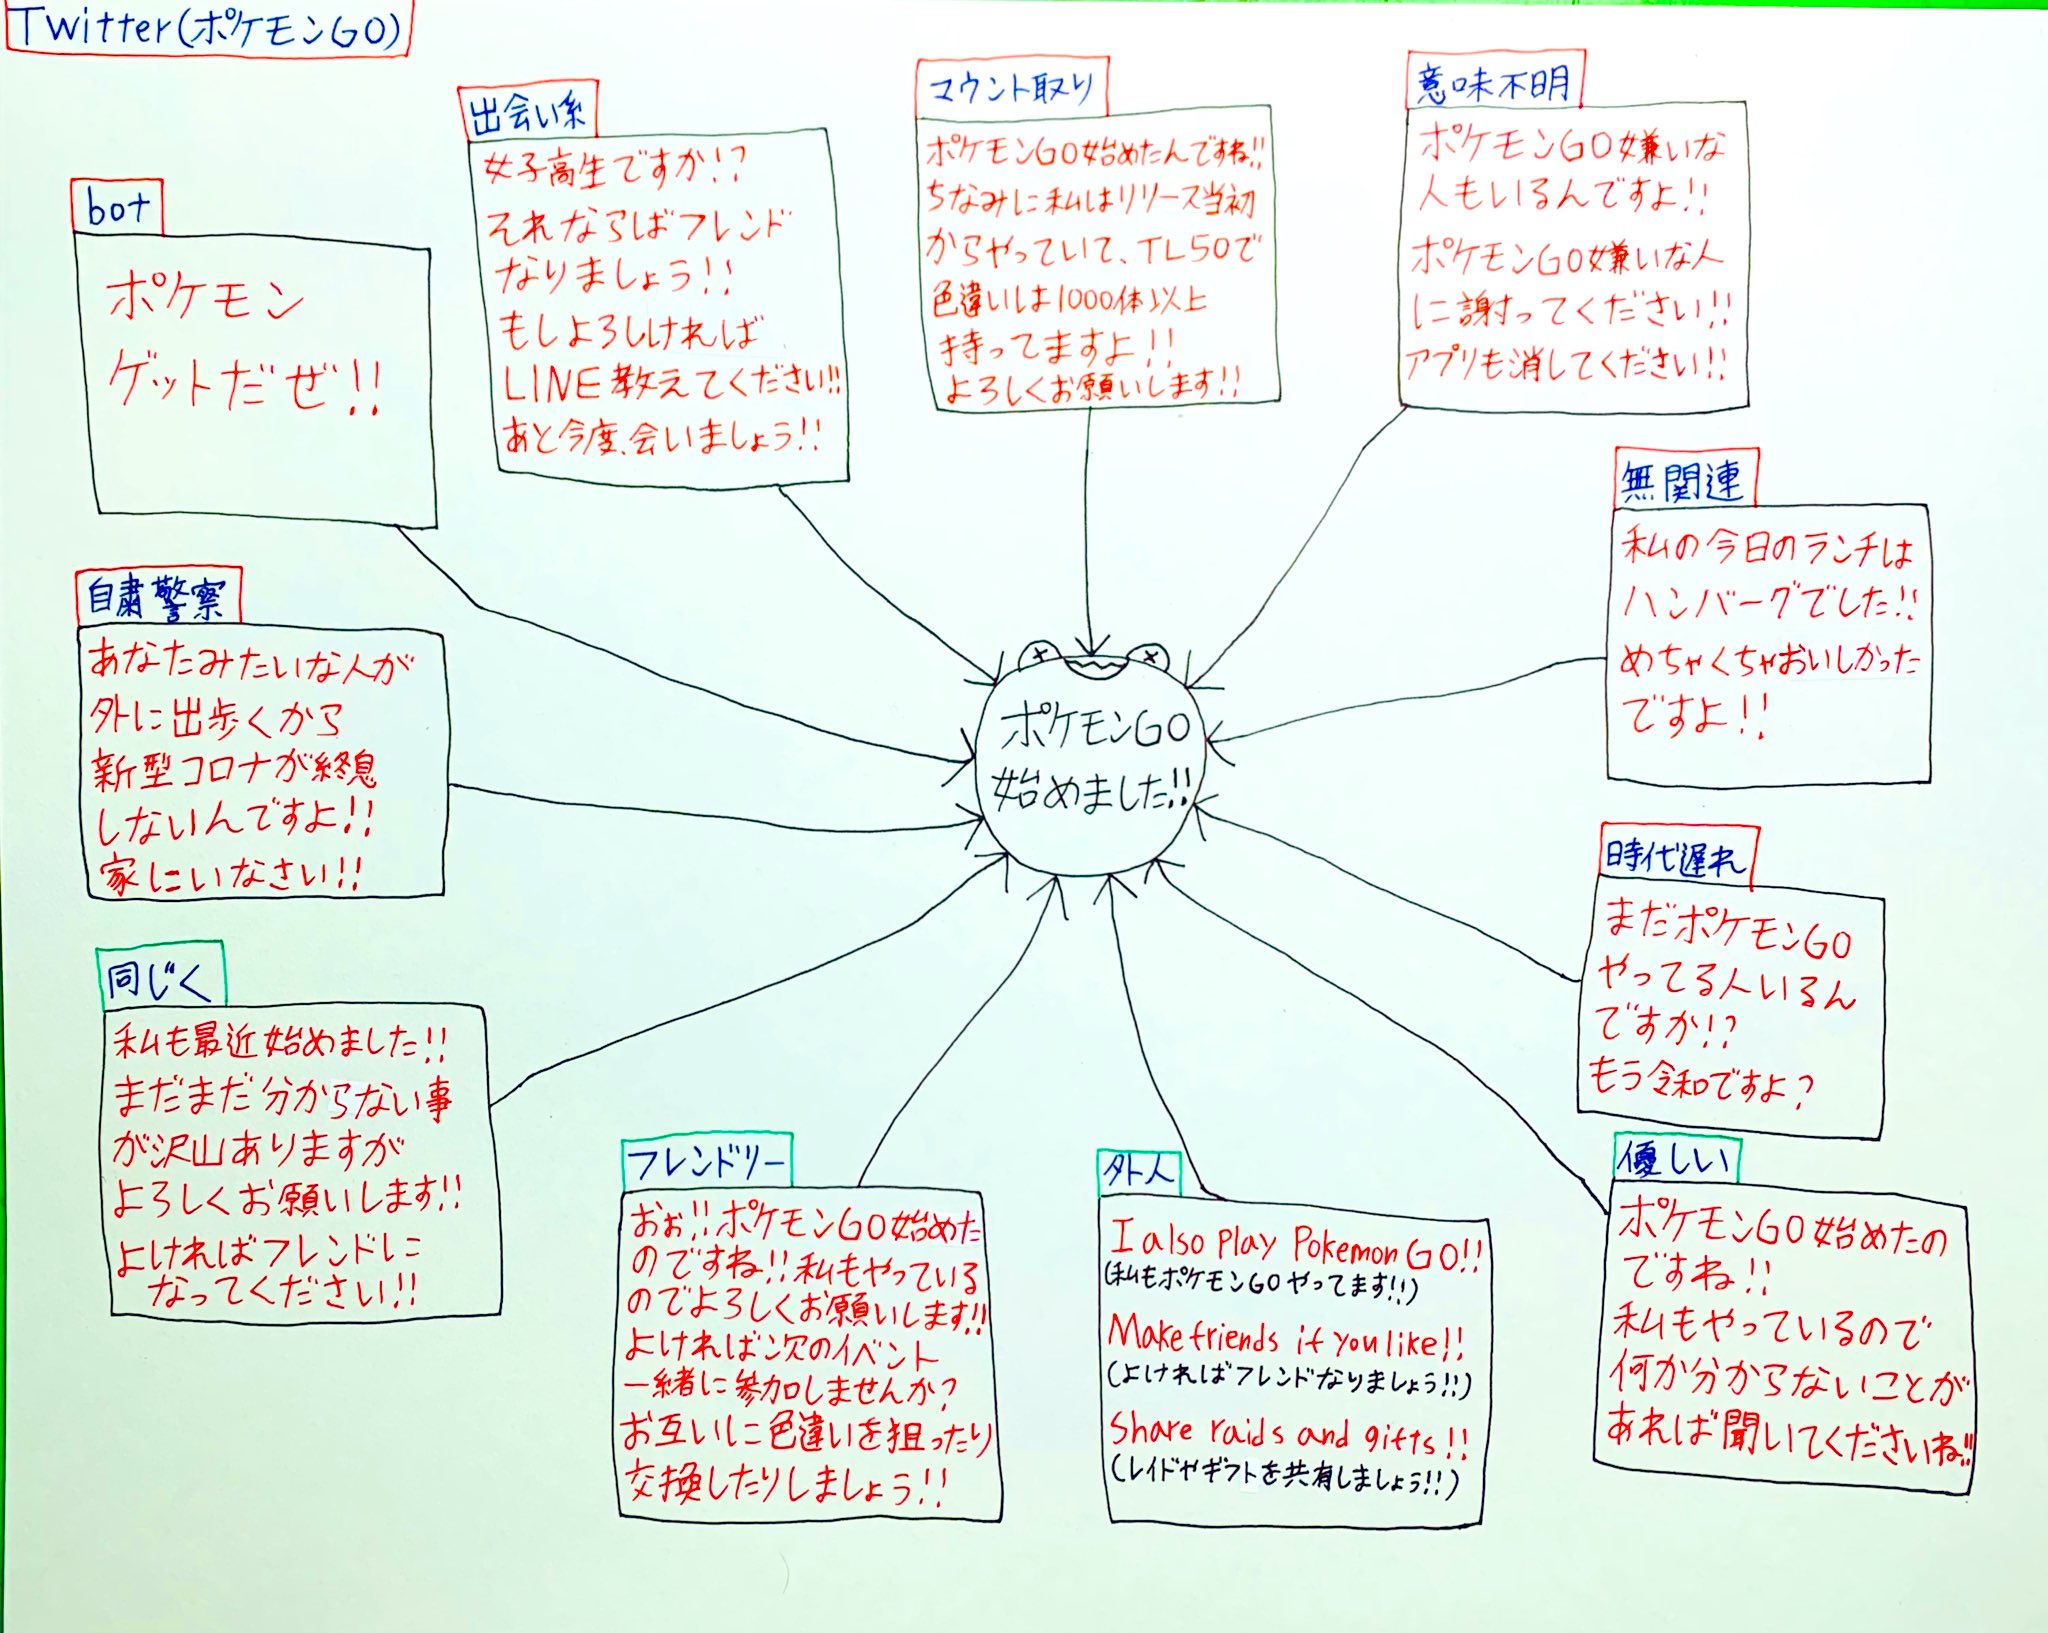 Twitter(ポケモンGO)
bot
ポケモン
ゲットだぜ!!
出会い系
女子高生ですか!?
それならばフレンド
なりましょう!!
もしよろしければ
LINE教えてください!!
あと今度、会いましょう!!
マウント取り
ポケモンGO始めたんですね!!
ちなみに私はリリース当初
からやっていて、TL50で
色違いは1000体以上
持ってますよ!!
よろしくお願いします!!
意味不明
ポケモンGO嫌いな
人もいるんですよ!!
ポケモンGO嫌いな人
に謝ってください!!
アプリも消してください!!
無関連
私の今日のランチは
ハンバーグでした!!
めちゃくちゃおいしかった
ですよ!!
自粛警察
あなたみたいな人が
外に出歩くから
新型コロナが終息
しないんですよ!!
家にいなさい!!
ポケモンGO
始めました!!
時代遅れ
まだポケモンGO
やってる人いるん
ですか!?
もう令和ですよ?
同じく
私も最近始めました!!
まだまだ分からない事
が沢山ありますが
よろしくお願いします!!
よければフレンドに
なってください!!
フレンドリー
おぉ!!ポケモンGO始めた
のですね!!私もやっている
のでよろしくお願いします!!
よければ次のイベント
一緒に参加しませんか?
お互いに色違いを狙ったり
交換したりしましょう!!
外人
I also play Pokemon GO!!
(私もポケモンGOやってます!!)
Make friends if you like!!
(よければフレンドなりましょう!!)
Share raids and gifts!!
(レイドやギフトを共有しましょう!!)
優しい
ポケモンGO始めたの
ですね!!
私もやっているので
何か分からないことが
あれば聞いてくださいね!!